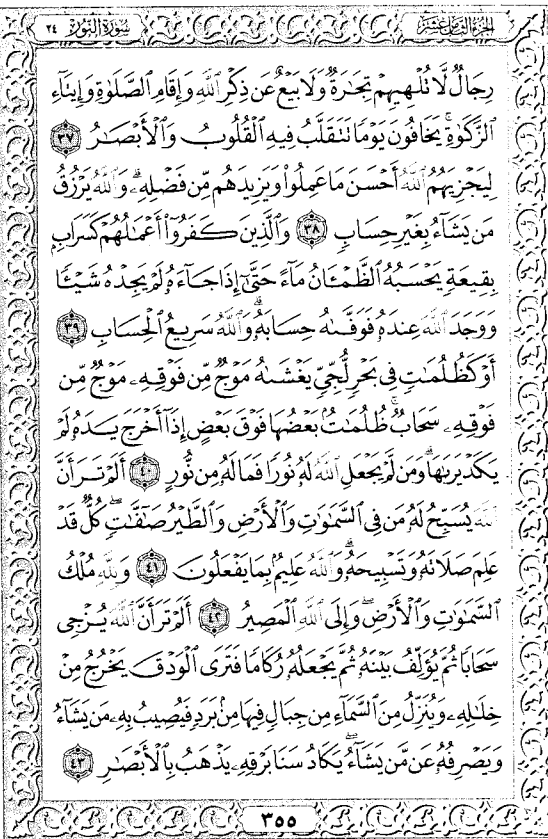 الجزء الثامن عشر
سورة النور ٢٤
رِجَالٌ لَّا تُلْهِيهِمْ تِجَٰرَةٌ وَلَا بَيْعٌ عَن ذِكْرِ ٱللَّهِ وَإِقَامِ ٱلصَّلَوٰةِ وَإِيتَآءِ
ٱلزَّكَوٰةِ ۙ يَخَافُونَ يَوْمًا تَتَقَلَّبُ فِيهِ ٱلْقُلُوبُ وَٱلْأَبْصَٰرُ ٣٧
لِيَجْزِيَهُمُ ٱللَّهُ أَحْسَنَ مَا عَمِلُوا۟ وَيَزِيدَهُم مِّن فَضْلِهِۦ ۗ وَٱللَّهُ يَرْزُقُ
مَن يَشَآءُ بِغَيْرِ حِسَابٍ ٣٨ وَٱلَّذِينَ كَفَرُوٓا۟ أَعْمَٰلُهُمْ كَسَرَابٍۭ
بِقِيعَةٍ يَحْسَبُهُ ٱلظَّمْـَٔانُ مَآءً حَتَّىٰٓ إِذَا جَآءَهُۥ لَمْ يَجِدْهُ شَيْـًٔا
وَوَجَدَ ٱللَّهَ عِندَهُۥ فَوَفَّىٰهُ حِسَابَهُۥ ۗ وَٱللَّهُ سَرِيعُ ٱلْحِسَابِ ٣٩
أَوْ كَظُلُمَٰتٍ فِى بَحْرٍ لُّجِّىٍّ يَغْشَىٰهُ مَوْجٌ مِّن فَوْقِهِۦ مَوْجٌ مِّن
فَوْقِهِۦ سَحَابٌ ۚ ظُلُمَٰتٌۢ بَعْضُهَا فَوْقَ بَعْضٍ إِذَآ أَخْرَجَ يَدَهُۥ لَمْ
يَكَدْ يَرَىٰهَا ۗ وَمَن لَّمْ يَجْعَلِ ٱللَّهُ لَهُۥ نُورًا فَمَا لَهُۥ مِن نُّورٍ ٤٠ أَلَمْ تَرَ أَنَّ
ٱللَّهَ يُسَبِّحُ لَهُۥ مَن فِى ٱلسَّمَٰوَٰتِ وَٱلْأَرْضِ وَٱلطَّيْرُ صَٰٓفَّٰتٍ ۖ كُلٌّ قَدْ
عَلِمَ صَلَاتَهُۥ وَتَسْبِيحَهُۥ ۗ وَٱللَّهُ عَلِيمٌۢ بِمَا يَفْعَلُونَ ٤١ وَلِلَّهِ مُلْكُ
ٱلسَّمَٰوَٰتِ وَٱلْأَرْضِ ۖ وَإِلَى ٱللَّهِ ٱلْمَصِيرُ ٤٢ أَلَمْ تَرَ أَنَّ ٱللَّهَ يُزْجِى
سَحَابًا ثُمَّ يُؤَلِّفُ بَيْنَهُۥ ثُمَّ يَجْعَلُهُۥ رُكَامًا فَتَرَى ٱلْوَدْقَ يَخْرُجُ مِنْ
خِلَٰلِهِۦ وَيُنَزِّلُ مِنَ ٱلسَّمَآءِ مِن جِبَالٍ فِيهَا مِنۢ بَرَدٍ فَيُصِيبُ بِهِۦ مَن يَشَآءُ
وَيَصْرِفُهُۥ عَن مَّن يَشَآءُ ۖ يَكَادُ سَنَا بَرْقِهِۦ يَذْهَبُ بِٱلْأَبْصَٰرِ ٤٣
٣٥٥